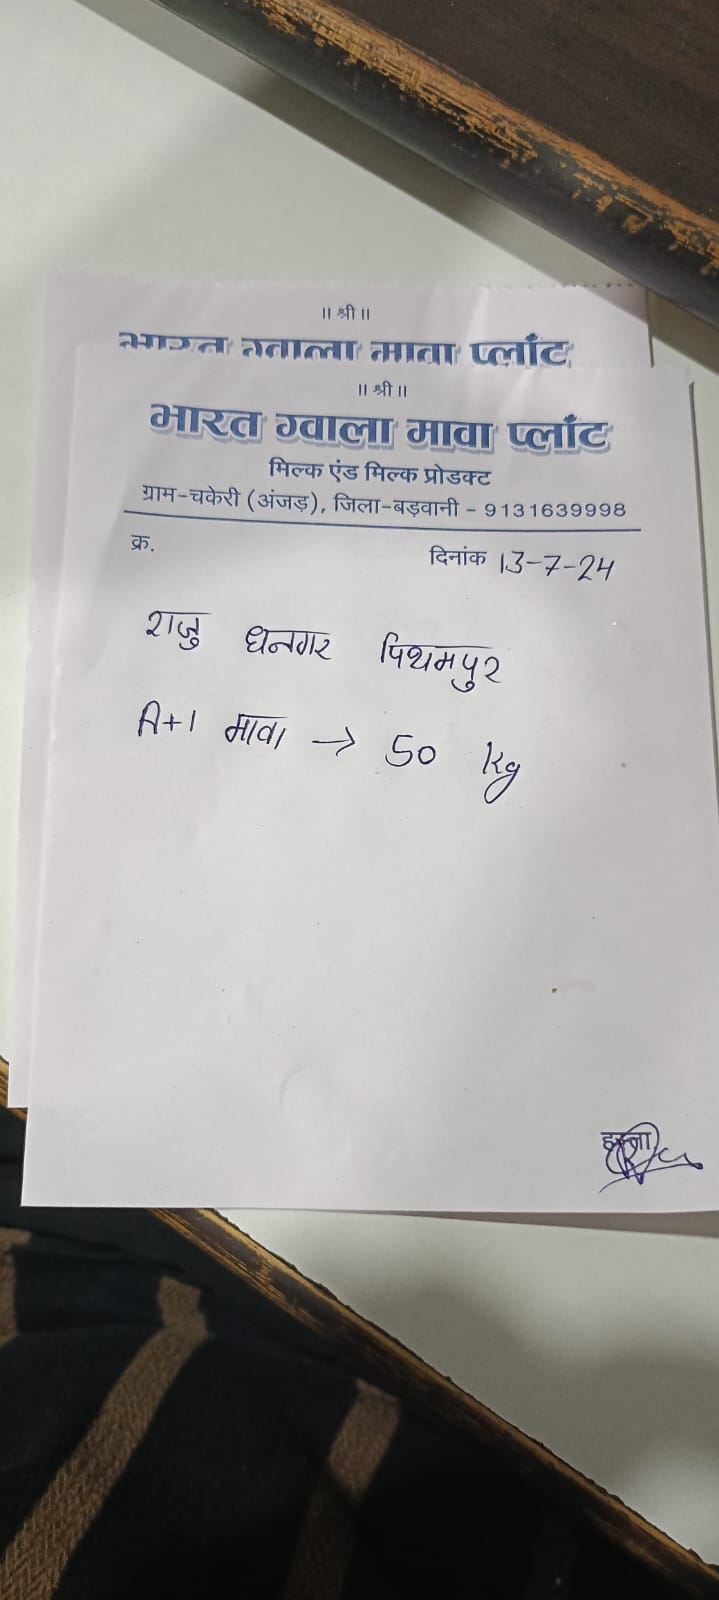 ॥ श्री ॥
भारत ग्वाला मावा प्लांट
॥ श्री ॥
भारत ग्वाला मावा प्लाँट
मिल्क एंड मिल्क प्रोडक्ट
ग्राम-चकेरी (अंजड़), जिला-बड़वानी - 9131639998
क्र.
दिनांक 13-7-24
राजु धनगर पिथमपुर
A+1 मावा → 50 kg